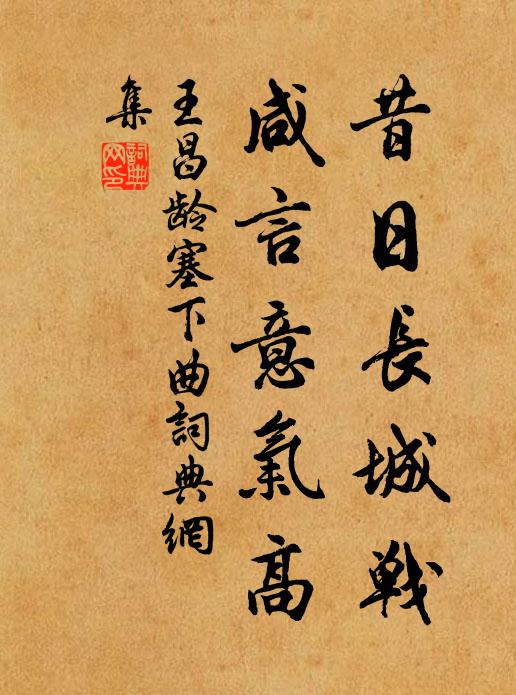 昔日長城戦
咸言意氣高
王昌龄塞下曲詞典網
集
詞典
网印